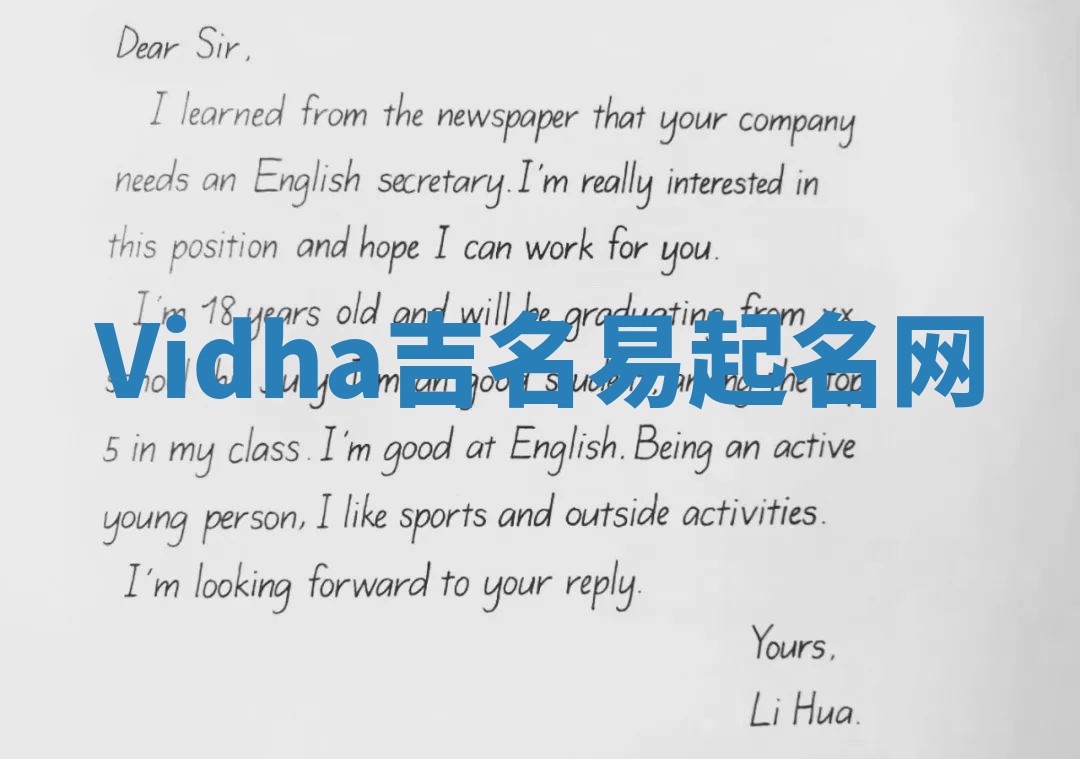 Dear Sir,
I learned from the newspaper that your company
needs an English secretary. I'm really interested in
this position and hope I can work for you.
I'm 18 years old and will be graduating from xx
Vidha吉名易起名网
July I'm an good student, among the top
5 in my class. I'm good at English. Being an active
young person, I like sports and outside activities.
I'm looking forward to your reply.
Yours,
Li Hua.